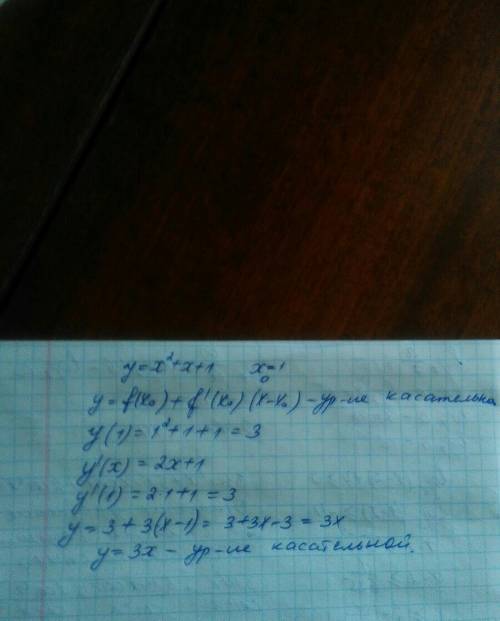 y=x²+x+1 x₀=1
y=f(x₀)+f'(x₀)(x-x₀) - ур-ие касательно
y(1)=1²+1+1=3
y'(x)=2x+1
y'(1)=2·1+1=3
y=3+3(x-1)=3+3x-3=3x
y=3x - ур-ие касательной.